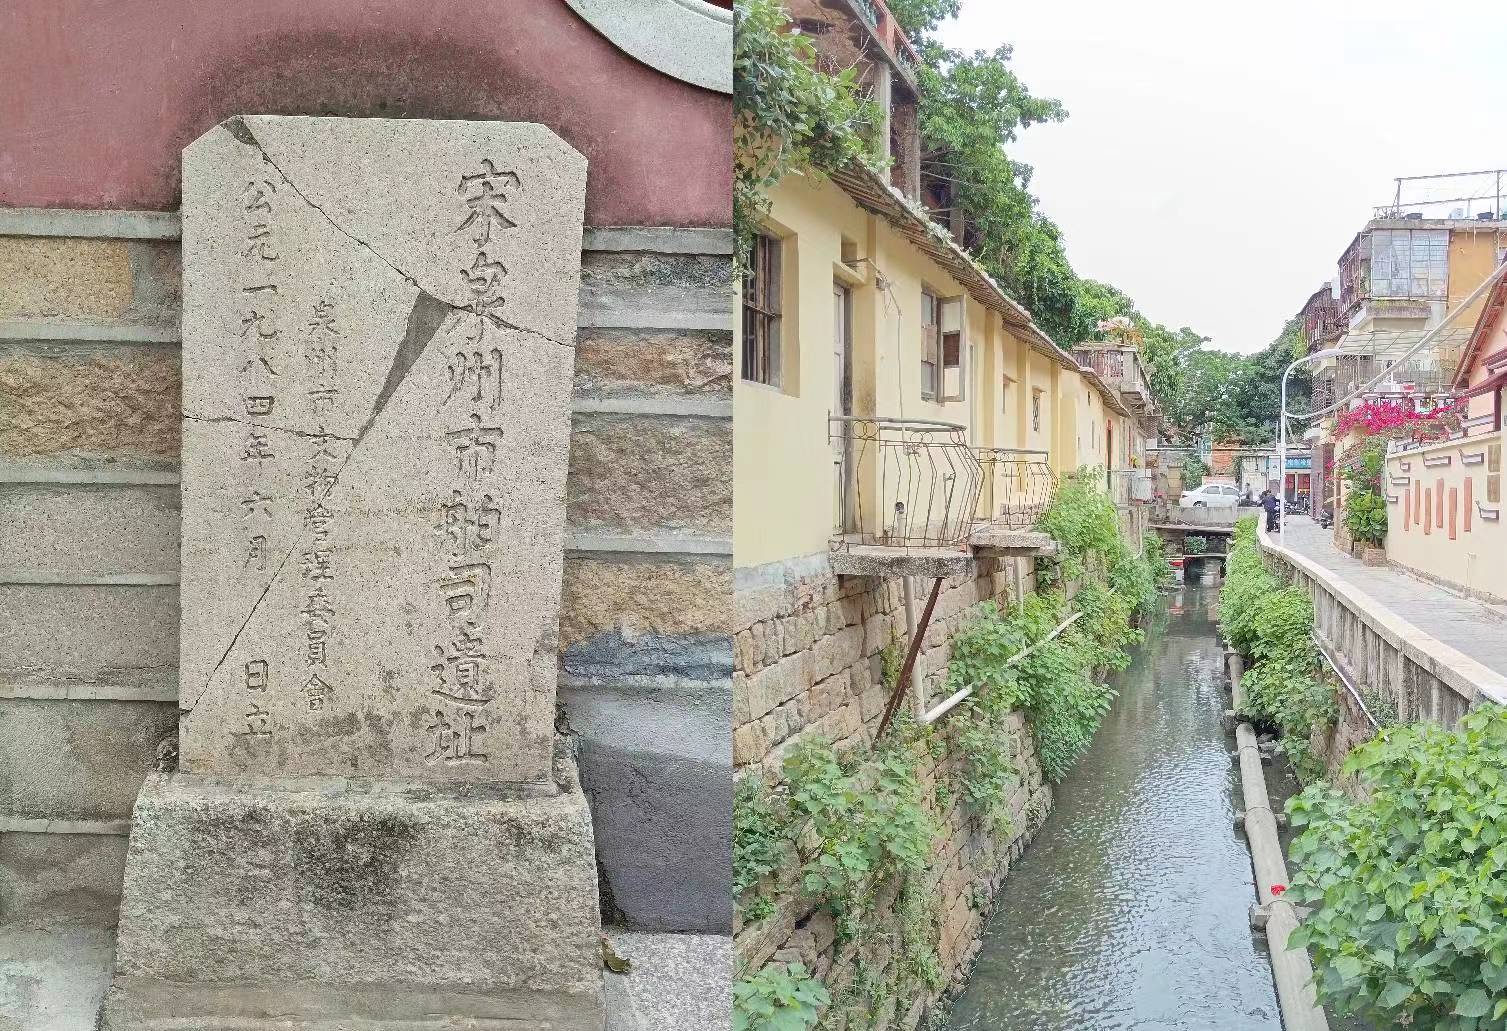 宋泉州市舶司遺址
泉州市文物管理委員會
公元一九八四年六月 日立